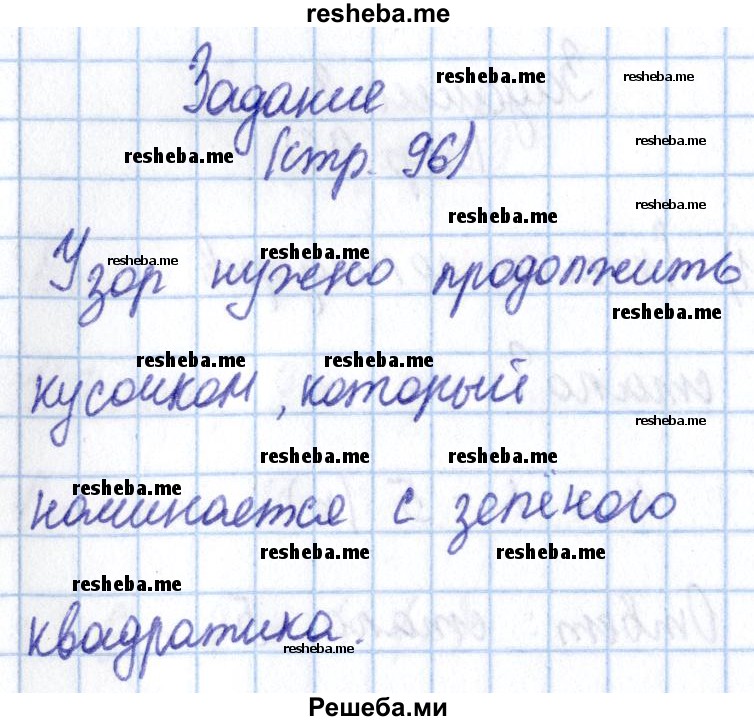 resheba.me
Задание
resheba.me resheba.me
resheba.me (стр. 96) resheba.me
resheba.me resheba.me
Узор нужно продолжить
resheba.me resheba.me
resheba.me
resheba.me resheba.me
кусочком, который
resheba.me
resheba.me resheba.me
resheba.me
начинается с зелёного
resheba.me resheba.me
resheba.me
квадратика.
resheba.me
Решеба.ми